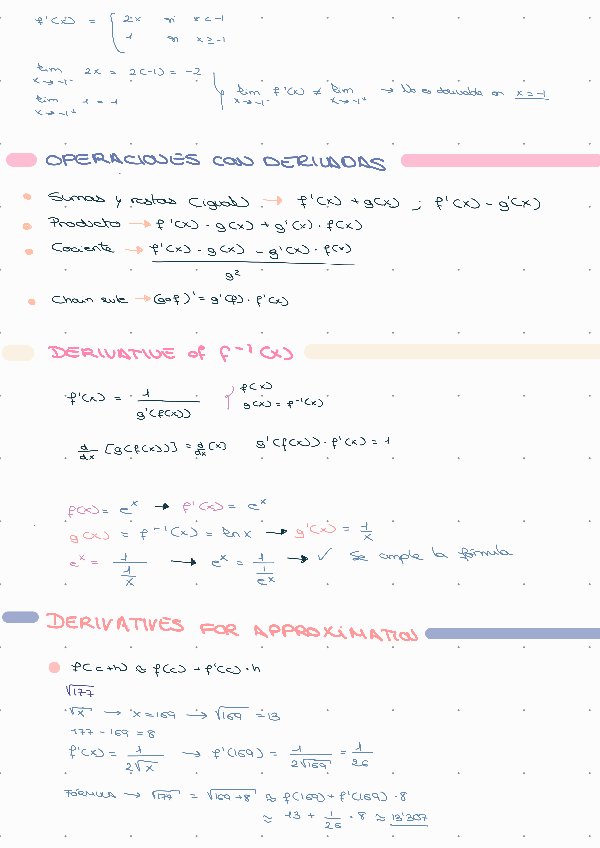 f'(x) = { 2x si x < -1
1 si x ≥ -1
lim x→-1⁻ 2x = 2(-1) = -2
lim x→-1⁺ 1 = 1
lim x→-1⁻ f'(x) ≠ lim x→-1⁺ → No es derivable en x=-1
OPERACIONES CON DERIVADAS
Sumas y restas (igual) → f'(x) + g(x) ; f'(x) - g'(x)
Producto → f'(x) · g(x) + g'(x) · f(x)
Cociente → f'(x) · g(x) - g'(x) · f(x)
g²
Chain rule → (g∘f)' = g'(f) · f'(x)
DERIVATIVE of f⁻¹(x)
f'(x) = 1 / g'(f(x)) { f(x)
g(x) = f⁻¹(x)
d/dx [g(f(x))] = d/dx (x) g'(f(x)) · f'(x) = 1
f(x) = eˣ → f'(x) = eˣ
g(x) = f⁻¹(x) = ln x → g'(x) = 1/x
eˣ = 1 / (1/x) → eˣ = 1 / (1/eˣ) → ✓ Se cumple la fórmula
DERIVATIVES FOR APPROXIMATION
f(c+h) ≈ f(c) + f'(c) · h
√177
√x → x = 169 → √169 = 13
177 - 169 = 8
f'(x) = 1 / 2√x → f'(169) = 1 / 2√169 = 1/26
FÓRMULA → √177 = √169+8 ≈ f(169) + f'(169) · 8
≈ 13 + 1/26 · 8 ≈ 13'307